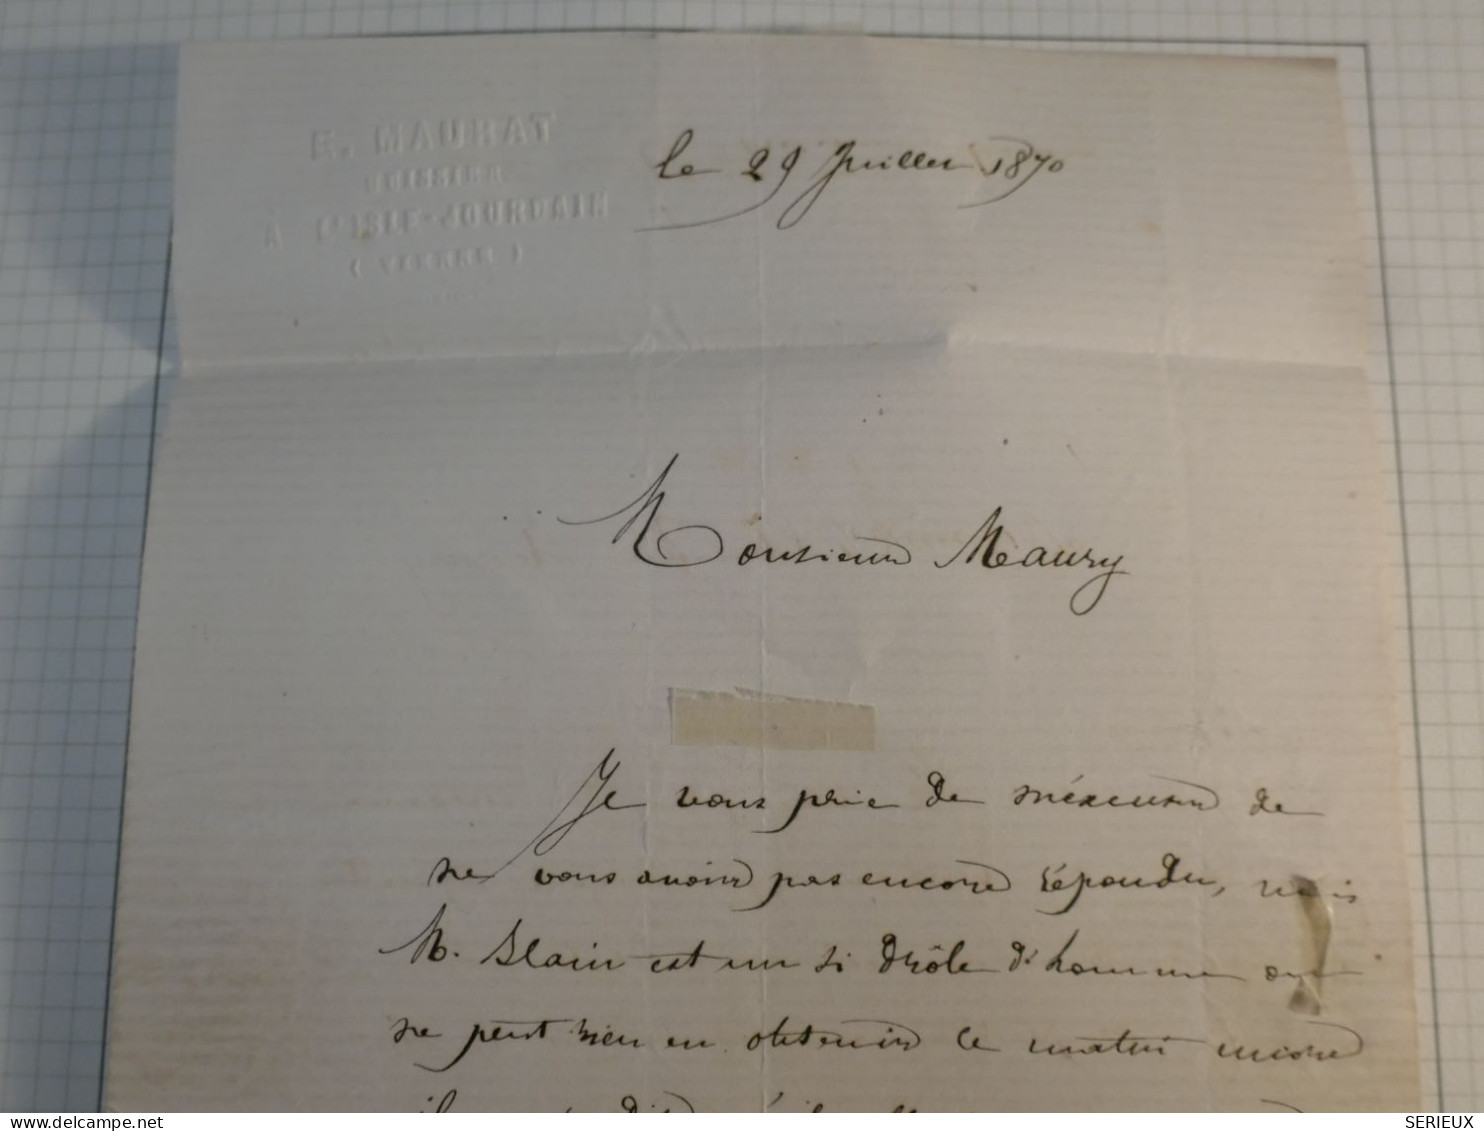 E. MAURAT
HUISSIER
A L'ISLE-JOURDAIN
( VIENNE )
le 29 Juillet 1870
Monsieur Maury
Je vous prie de m'excuser de
ne vous avoir pas encore répondu, mais
M. Blain est un si drôle d'homme on
ne peut rien en obtenir ce matin encore
il m'a dit qu'il
SERIEUX
www.delcampe.net